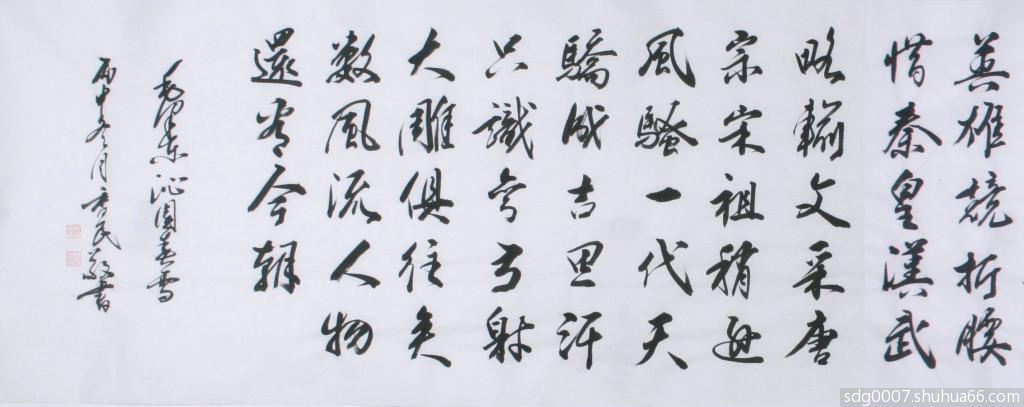 英雄競折腰
惜秦皇漢武
略輸文采唐
宗宋祖稍遜
風騷一代天
驕成吉思汗
只識彎弓射
大雕俱往矣
數風流人物
還看今朝
毛澤東沁園春雪
丙申冬月民敬書
sdg0007.shuhua66.com